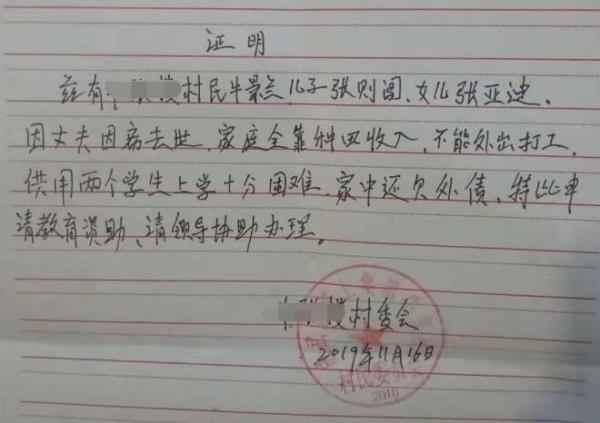 证明
兹有 村民牛景兰,儿子张则阔、女儿张亚迪,
因丈夫因病去世,家庭全靠种田收入,不能外出打工,
供用两个学生上学十分困难,家中还欠外债,特此申
请教育资助、请领导协助办理。
楼村委会
2019年11月16日
村民委员会
2010